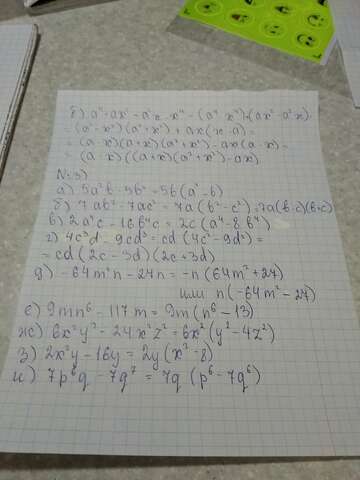 б) a⁴ + ax³ - a³x - x⁴ = (a⁴ - x⁴) + (ax³ - a³x)
= (a² - x²)(a² + x²) + ax(x - a) =
= (a - x)(a + x)(a² + x²) - ax(a - x) =
= (a - x)((a + x)(a² + x²) - ax)
№3)
а) 5a²b - 5b² = 5b(a² - b)
б) 7ab² - 7ac² = 7a(b² - c²) = 7a(b - c)(b + c)
в) 2a⁴c - 16b⁴c = 2c(a⁴ - 8b⁴)
г) 4c³d - 9cd³ = cd(4c² - 9d²) =
= cd(2c - 3d)(2c + 3d)
д) -64m²n - 27n = -n(64m² + 27)
или n(-64m² - 27)
е) 9mn⁶ - 117m = 9m(n⁶ - 13)
ж) 6x²y² - 24x²z² = 6x²(y² - 4z²)
з) 2x³y - 16y = 2y(x³ - 8)
и) 7p⁶q - 7q⁷ = 7q(p⁶ - 7q⁶)